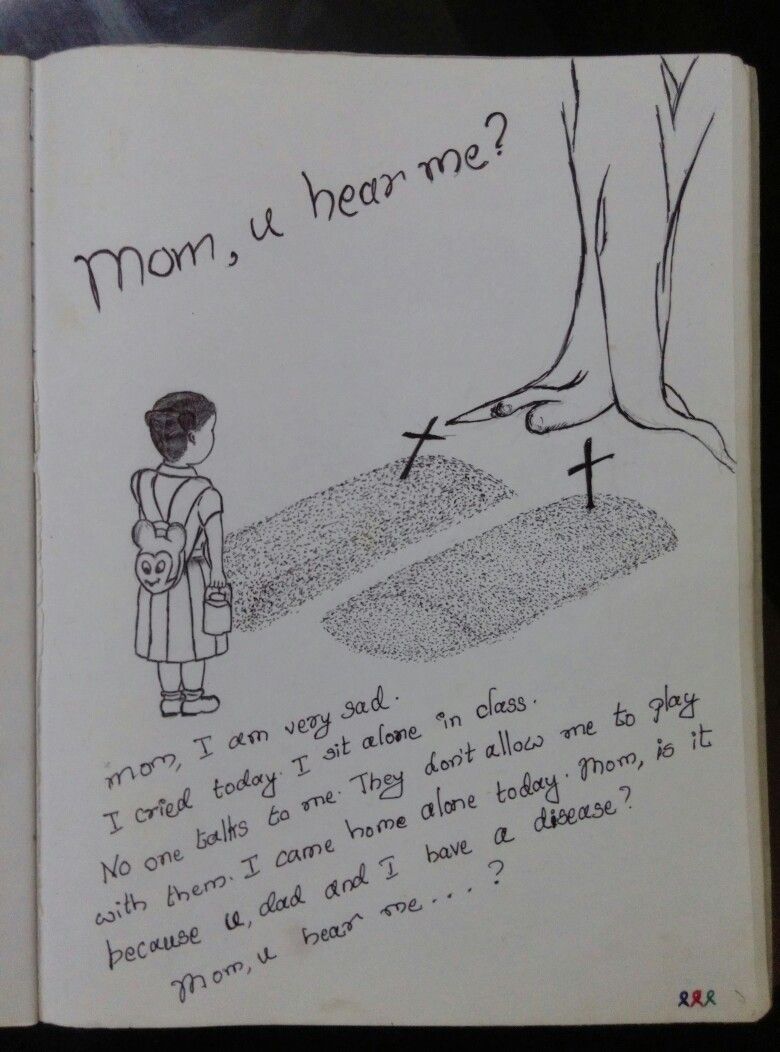 Mom, u hear me?
Mom, I am very sad.
I cried today. I sit alone in class.
No one talks to me. They don't allow me to play
with them. I came home alone today. Mom, is it
because u, dad and I have a disease?
Mom, u hear me....?